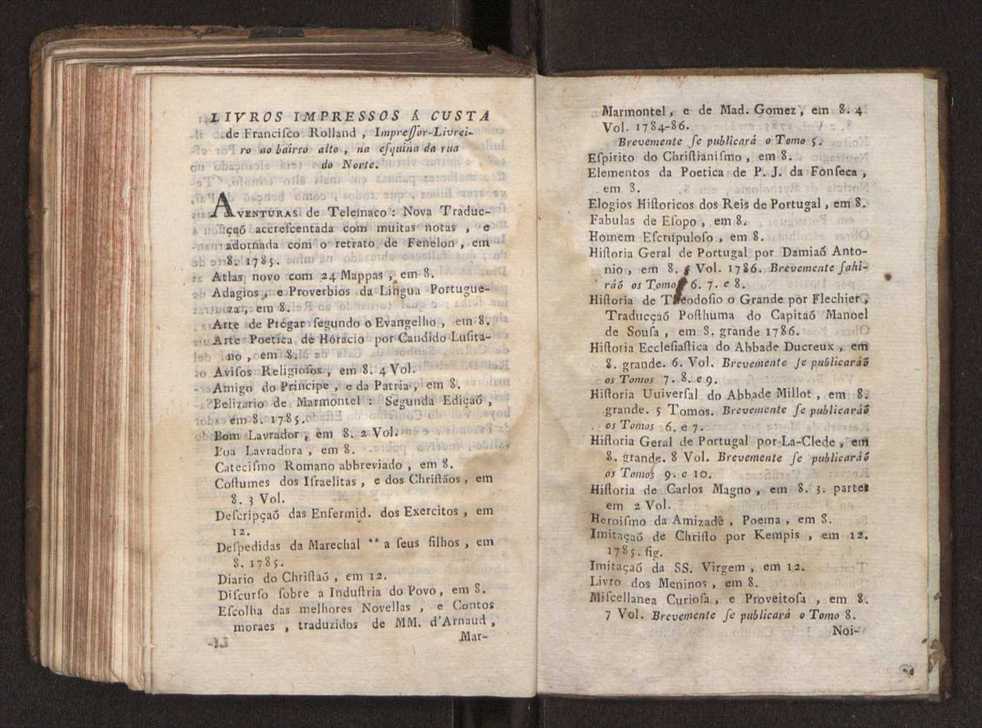 LIVROS IMPRESSOS Á CUSTA
de Franciſco Rolland , Impreſſor-Livrei-
ro ao bairro alto , na eſquina da rua
do Norte.
AVENTURAS de Telemaco : Nova Traduc-
çaõ accreſcentada com muitas notas , e
adornada com o retrato de Fenelon , em
8. 1785.
Atlas novo com 24 Mappas , em 8.
Adagios , e Proverbios da Lingua Portugue-
za , em 8.
Arte de Prégar ſegundo o Evangelho , em 8.
Arte Poetica de Horacio por Candido Luſita-
no , em 8.
Aviſos Religioſos , em 8. 4 Vol.
Amigo do Principe , e da Patria , em 8.
Belizario de Marmontel : Segunda Ediçaõ ,
em 8. 1785.
Bom Lavrador , em 8. 2 Vol.
Boa Lavradora , em 8.
Cateciſmo Romano abbreviado , em 8.
Coſtumes dos Iſraelitas , e dos Chriſtãos , em
8. 3 Vol.
Deſcripçaõ das Enfermid. dos Exercitos , em
12.
Deſpedidas da Marechal ** a ſeus filhos , em
8. 1785.
Diario do Chriſtaõ , em 12.
Diſcurſo ſobre a Induſtria do Povo , em 8.
Eſcolha das melhores Novellas , e Contos
moraes , traduzidos de MM. d'Arnaud ,
Mar-
Marmontel , e de Mad. Gomez , em 8. 4
Vol. 1784-86.
Brevemente ſe publicará o Tomo 5.
Eſpirito do Chriſtianiſmo , em 8.
Elementos da Poetica de P. J. da Fonſeca ,
em 8.
Elogios Hiſtoricos dos Reis de Portugal , em 8.
Fabulas de Eſopo , em 8.
Homem Eſcrupuloſo , em 8.
Hiſtoria Geral de Portugal por Damiaõ Anto-
nio , em 8. Vol. 1786. Brevemente ſahi-
ráõ os Tomos 6. 7. e 8.
Hiſtoria de Theodoſio o Grande por Flechier ,
Traducçaõ Poſthuma do Capitaõ Manoel
de Souſa , em 8. grande 1786.
Hiſtoria Eccleſiaſtica do Abbade Ducreux , em
8. grande. 6. Vol. Brevemente ſe publicaráõ
os Tomos 7. 8. e 9.
Hiſtoria Uuiverſal do Abbade Millot , em 8.
grande. 5 Tomos. Brevemente ſe publicaráõ
os Tomos 6. e 7.
Hiſtoria Geral de Portugal por La-Clede , em
8. grande. 8 Vol. Brevemente ſe publicaráõ
os Tomos 9. e 10.
Hiſtoria de Carlos Magno , em 8. 3. partes
em 2 Vol.
Heroiſmo da Amizade , Poema , em 8.
Imitaçaõ de Chriſto por Kempis , em 12.
1785. fig.
Imitaçaõ da SS. Virgem , em 12.
Livro dos Meninos , em 8.
Miſcellanea Curioſa , e Proveitoſa , em 8.
7 Vol. Brevemente ſe publicará o Tomo 8.
Noi-